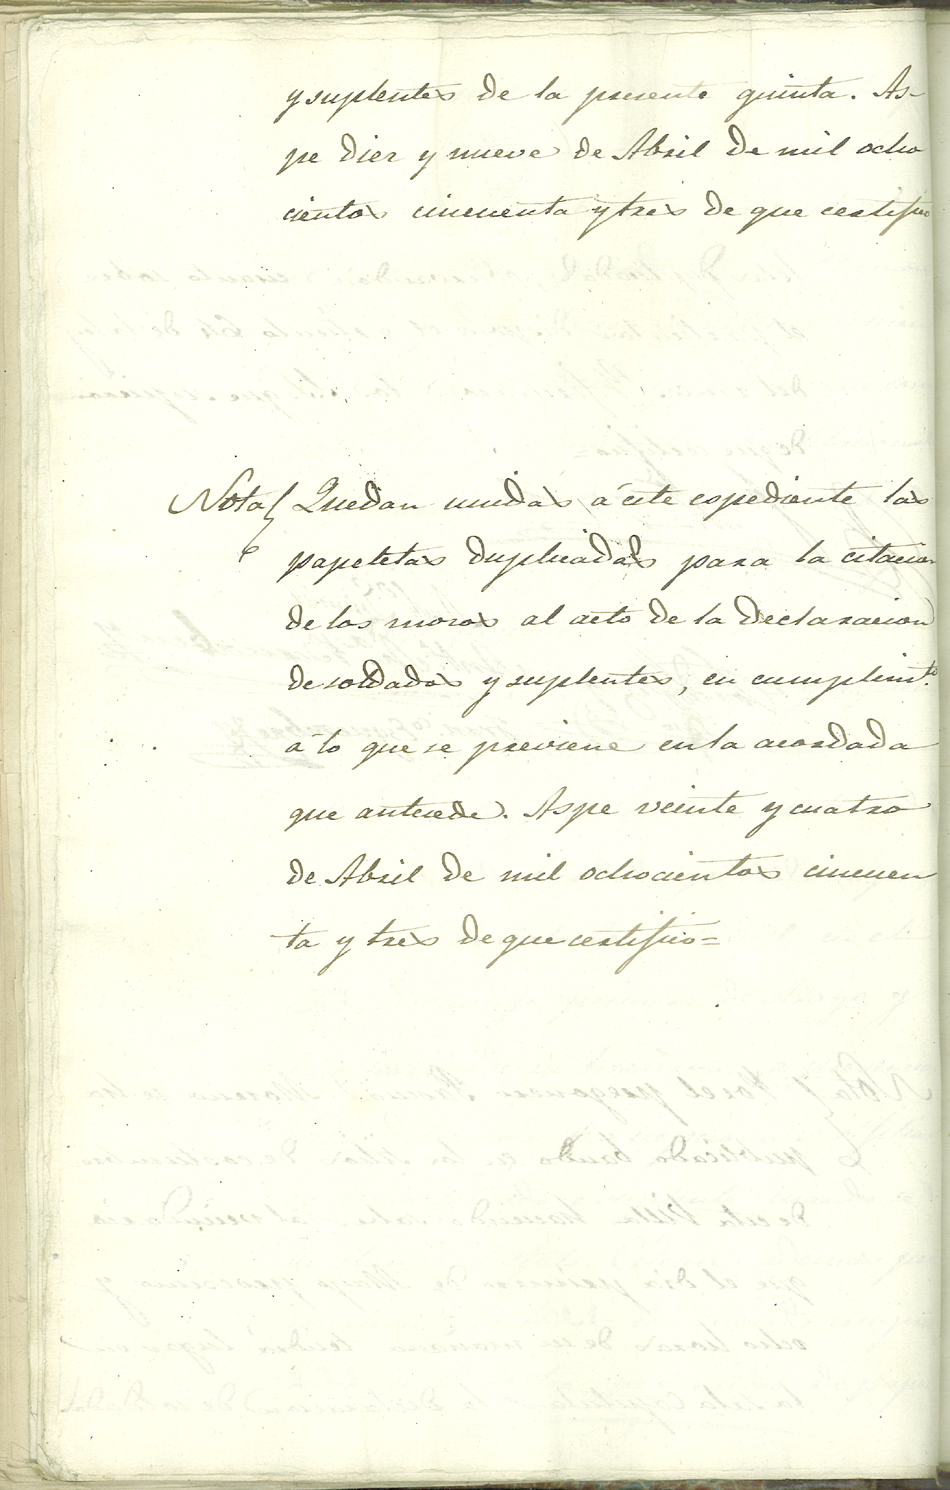 y suplentes de la presente quinta. As-
pe diez y nueve de Abril de mil ocho
cientos cincuenta y tres de que certifico
Nota Quedan unidas á este espediente las
papeletas duplicadas para la citacion
de los mozos al acto de la declaracion
de soldados y suplentes, en cumplimto.
á lo que se previene en la acordada
que antecede. Aspe veinte y cuatro
de Abril de mil ochocientos cincuen
ta y tres de que certifico=